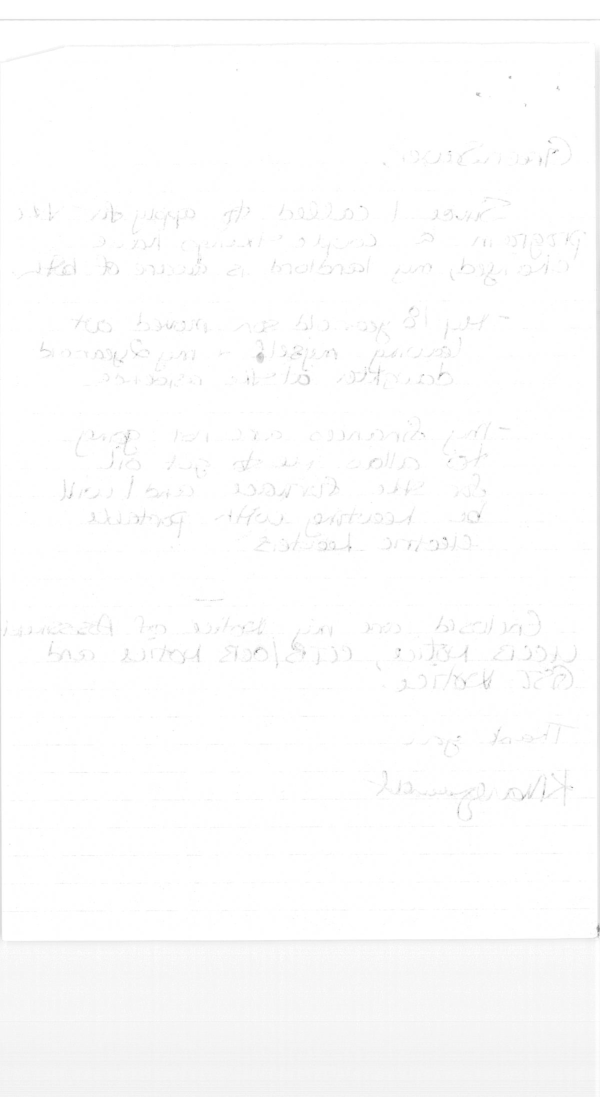 Since I called to apply for the
program a couple things have
changed, my landlord is aware of both.
- My 18 year old son moved out
leaving myself + my 2 year old
daughter at the residence
- My finances are not going
to allow me to get oil
for the furnace and I will
be heating with portable
electric heaters.
Enclosed are my Notice of Assessment
UCCB Notice, CCTB/OCB Notice and
GST Notice.
Thank you